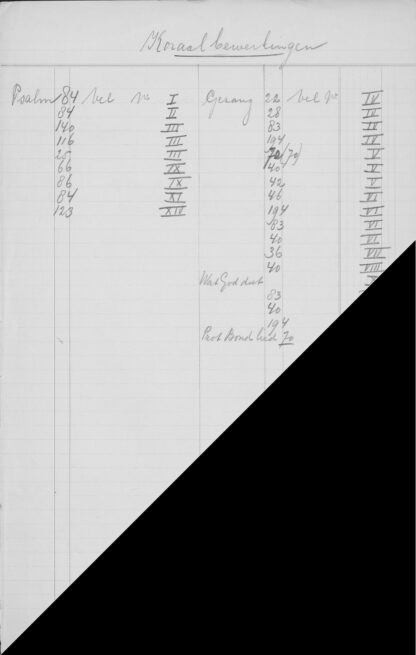 Koraalbewerkingen
Psalm 84 vel No I Gezang 22 vel No IV
84 II 28 II
140 III 83 II
116 III 194 IV
25 III 70 (70) V
66 IX 40 V
86 IX 42 V
84 XI 46 VI
123 XIV 194 VI
83 VI
40 VI
36 VII
40 VIII
Wat God doet
83
40
194
Prot Bond lied 70